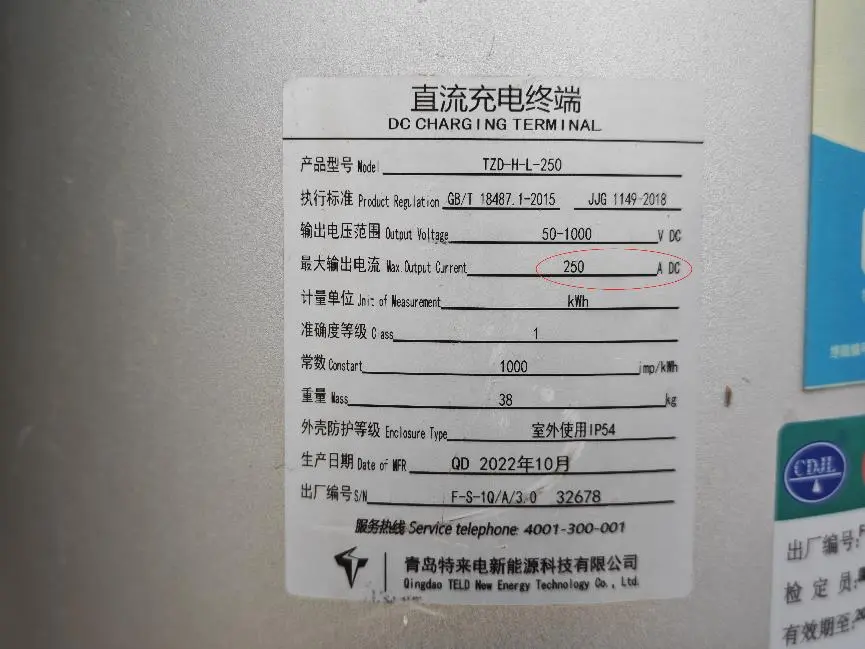 直流充电终端
DC CHARGING TERMINAL
产品型号 Model TZD-H-L-250
执行标准 Product Regulation GB/T 18487.1-2015 JJG 1149-2018
输出电压范围 Output Voltage 50-1000 V DC
最大输出电流 Max.Output Current 250 A DC
计量单位 Unit of Measurement kWh
准确度等级 Class 1
常数 Constart 1000 imp/kWh
重量 Mass 38 kg
外壳防护等级 Enclosure Type 室外使用IP54
生产日期 Date of MFR QD 2022年10月
出厂编号 S/N F-S-1Q/A/3.0 32678
服务热线 Service telephone: 4001-300-001
青岛特来电新能源科技有限公司
Qingdao TELD New Energy Technology Co., Ltd.
CDJL
出厂编号:
检定员:
有效期至: